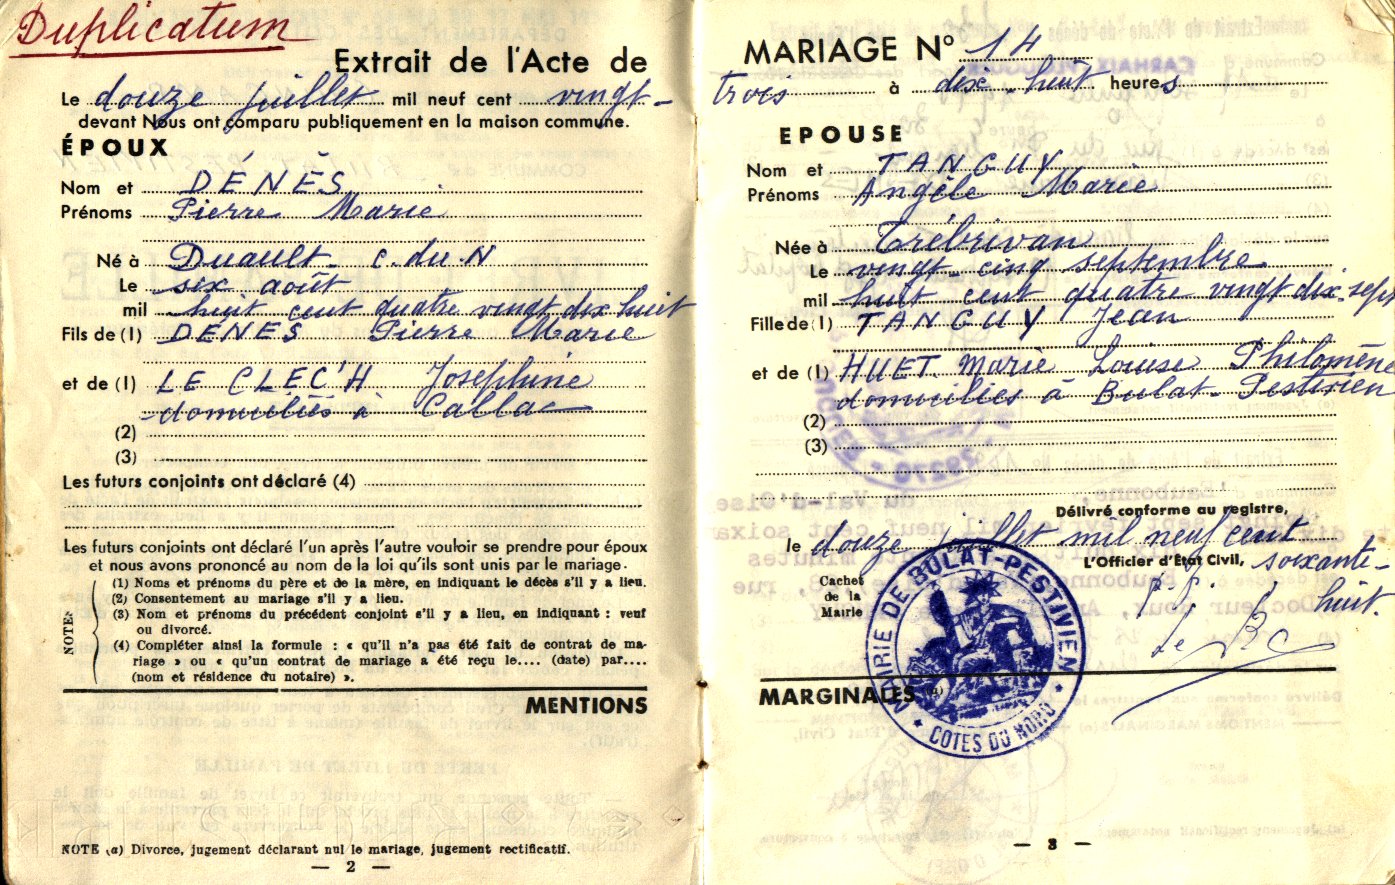 Duplicatum
Extrait de l'Acte de
Le douze juillet mil neuf cent vingt-
devant Nous ont comparu publiquement en la maison commune.
ÉPOUX
Nom et DÉNÈS
Prénoms Pierre Marie
Né à Duault C. du N
Le six août
mil huit cent quatre vingt dix huit
Fils de (1) DÉNÈS Pierre Marie
et de (1) LE CLEC'H Joséphine
domiciliés à Callac
(2)
(3)
Les futurs conjoints ont déclaré (4)
Les futurs conjoints ont déclaré l'un après l'autre vouloir se prendre pour époux
et nous avons prononcé au nom de la loi qu'ils sont unis par le mariage.
NOTES
(1) Noms et prénoms du père et de la mère, en indiquant le décès s'il y a lieu.
(2) Consentement au mariage s'il y a lieu.
(3) Nom et prénoms du précédent conjoint s'il y a lieu, en indiquant : veuf
ou divorcé.
(4) Compléter ainsi la formule : « qu'il n'a pas été fait de contrat de ma-
riage » ou « qu'un contrat de mariage a été reçu le.... (date) par....
(nom et résidence du notaire) ».
MENTIONS
NOTE (a) Divorce, jugement déclarant nul le mariage, jugement rectificatif.
— 2 —
MARIAGE N° 14
trois à dix-huit heures
EPOUSE
Nom et TANGUY
Prénoms Angèle Marie
Née à Trébrivan
Le vingt-cinq septembre
mil huit cent quatre vingt dix-sept
Fille de (1) TANGUY Jean
et de (1) HUET Marie Louise Philomène
domiciliés à Bulat-Pestivien
(2)
(3)
Délivré conforme au registre,
le douze juillet mil neuf cent
L'Officier d'Etat Civil, soixante-
huit.
Cachet
de la
Mairie
MAIRIE DE BULAT-PESTIVIEN
★ COTES DU NORD ★
MARGINALES (a)
— 3 —